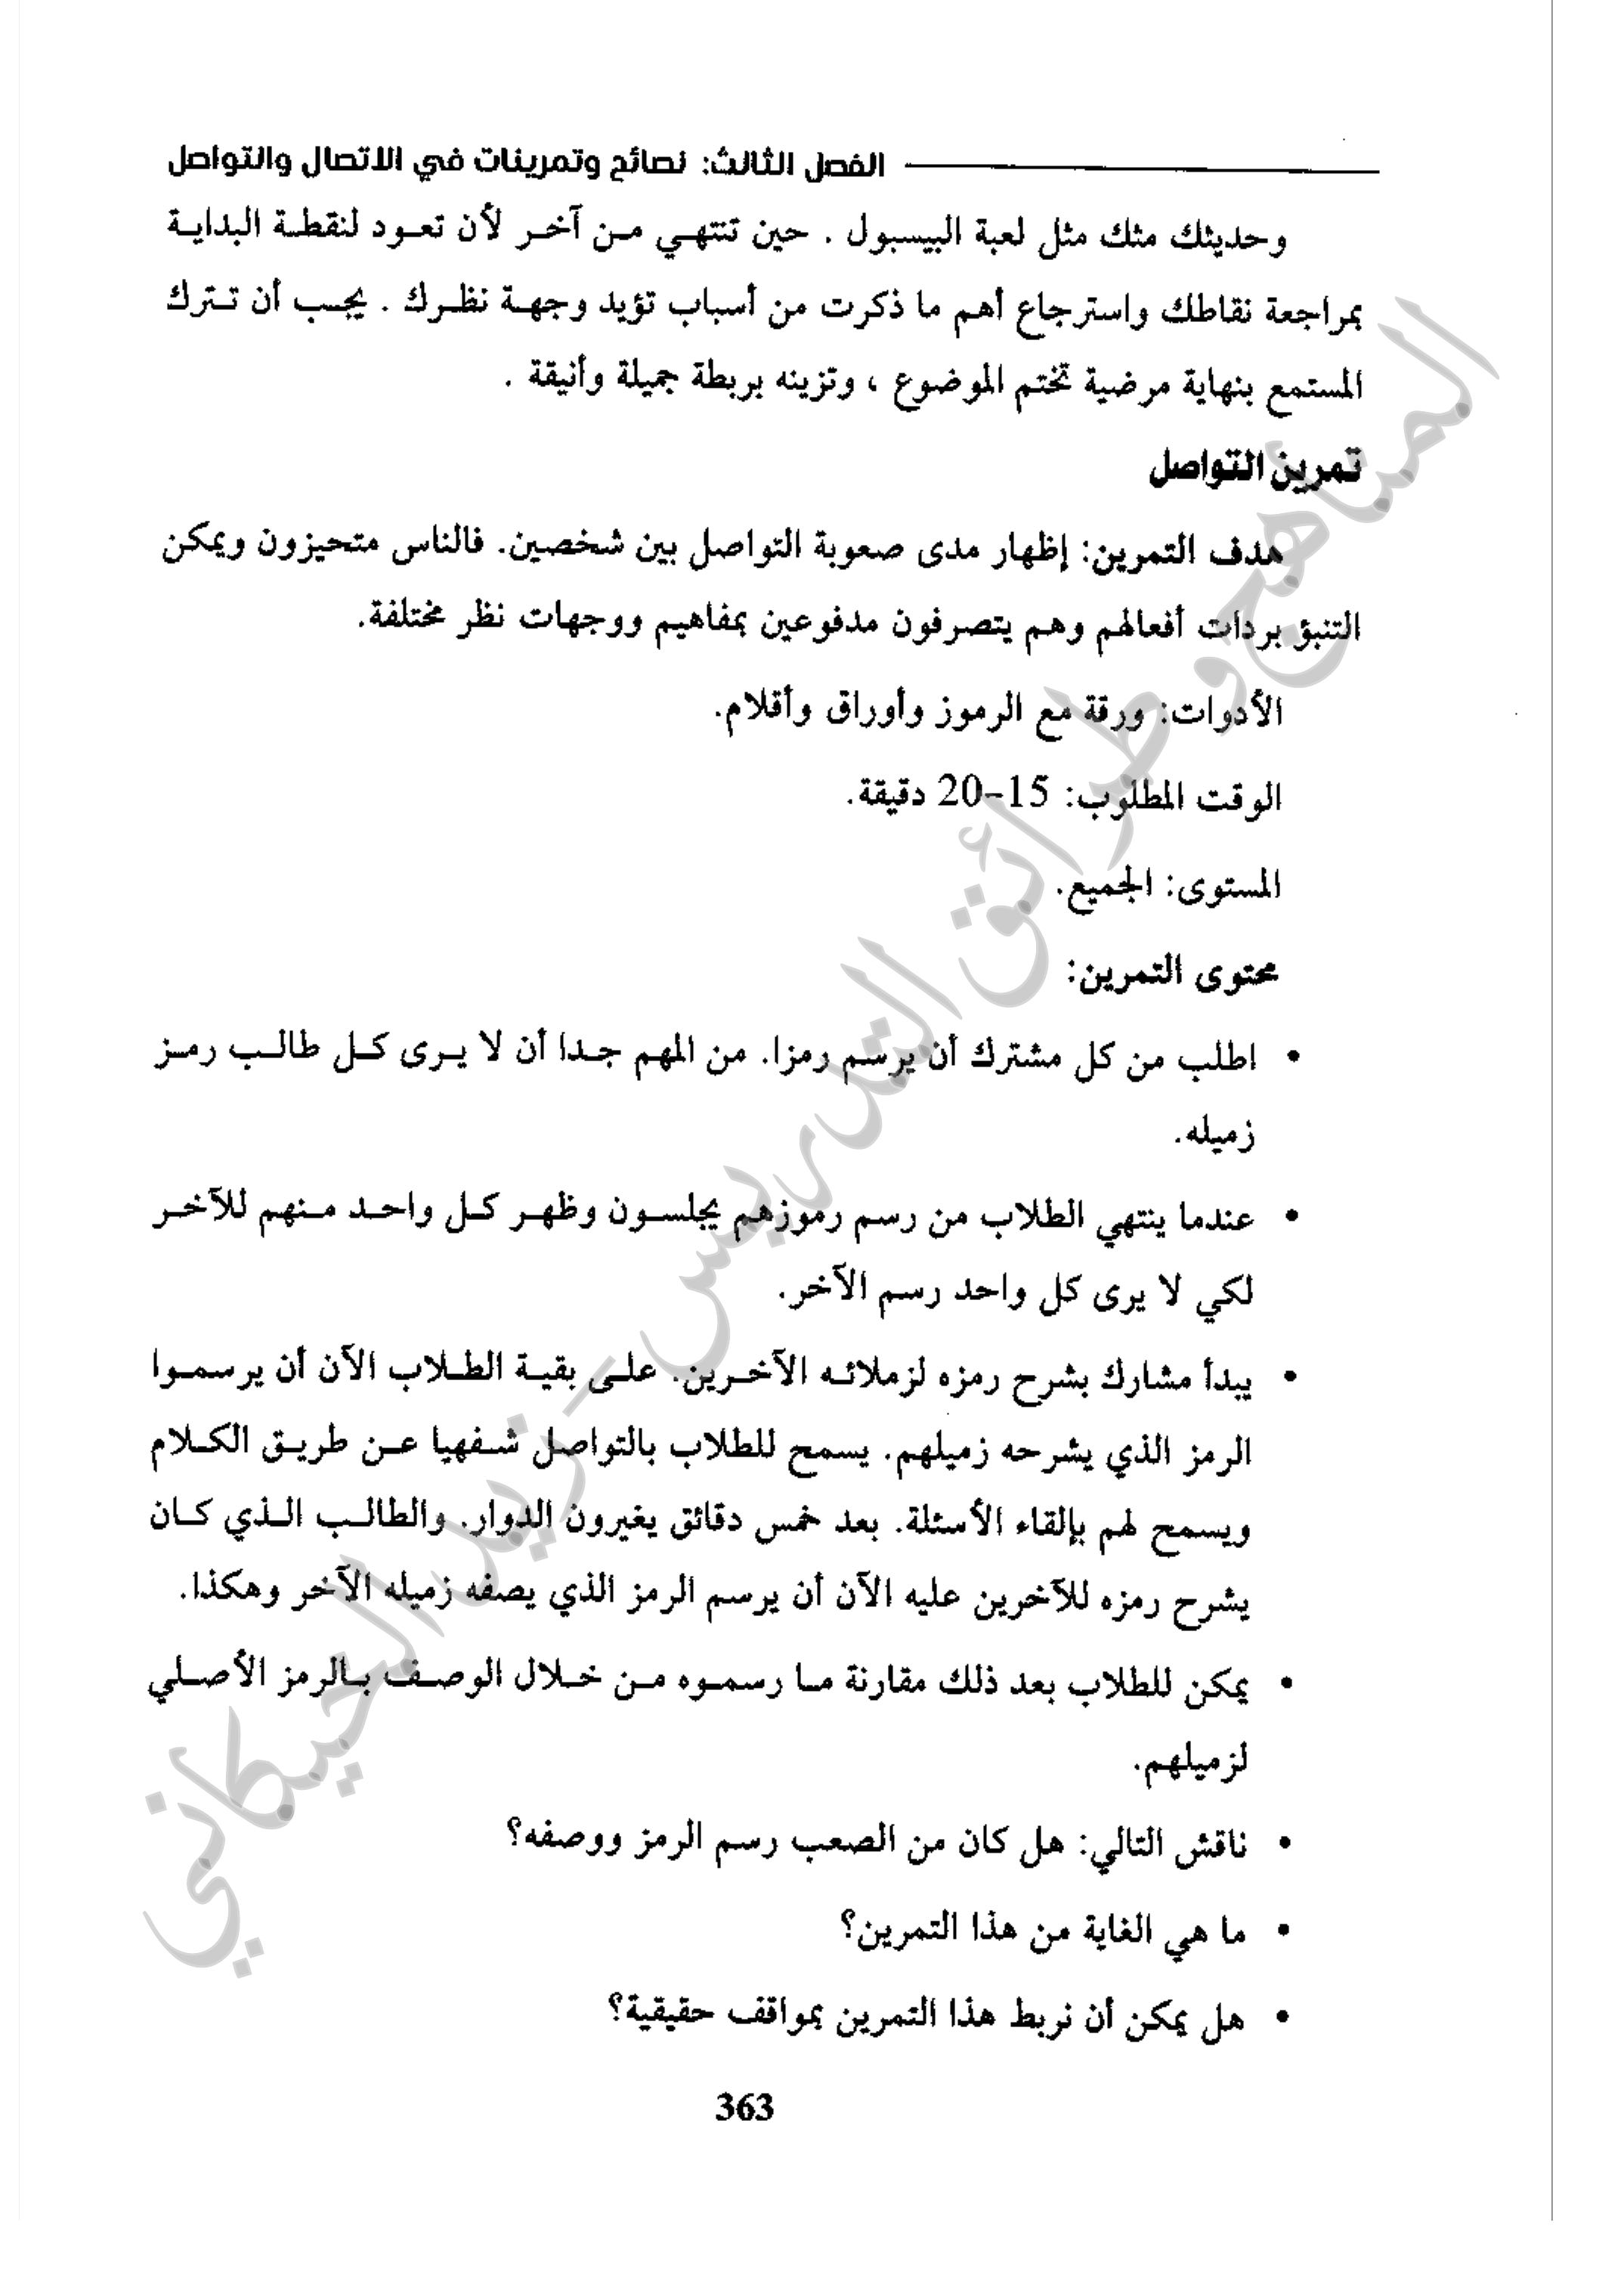 الفصل الثالث: نصائح وتمرينات في الاتصال والتواصل
وحديثك مثك مثل لعبة البيسبول . حين تنتهي من آخر لأن تعود لنقطة البداية
بمراجعة نقاطك واسترجاع أهم ما ذكرت من أسباب تؤيد وجهة نظرك . يجب أن تترك
المستمع بنهاية مرضية تختم الموضوع ، وتزينه بربطة جميلة وأنيقة .
تمرين التواصل
هدف التمرين: إظهار مدى صعوبة التواصل بين شخصين. فالناس متحيزون ويمكن
التنبؤ بردات أفعالهم وهم يتصرفون مدفوعين بمفاهيم ووجهات نظر مختلفة.
الأدوات: ورقة مع الرموز وأوراق وأقلام.
الوقت المطلوب: 15-20 دقيقة.
المستوى: الجميع.
محتوى التمرين:
• اطلب من كل مشترك أن يرسم رمزا. من المهم جدا أن لا يرى كل طالب رمز
زميله.
• عندما ينتهي الطلاب من رسم رموزهم يجلسون وظهر كل واحد منهم للآخر
لكي لا يرى كل واحد رسم الآخر.
• يبدأ مشارك بشرح رمزه لزملائه الآخرين. على بقية الطلاب الآن أن يرسموا
الرمز الذي يشرحه زميلهم. يسمح للطلاب بالتواصل شفهيا عن طريق الكلام
ويسمح لهم بإلقاء الأسئلة. بعد خمس دقائق يغيرون الدوار. والطالب الذي كان
يشرح رمزه للآخرين عليه الآن أن يرسم الرمز الذي يصفه زميله الآخر وهكذا.
• يمكن للطلاب بعد ذلك مقارنة ما رسموه من خلال الوصف بالرمز الأصلي
لزميلهم.
• ناقش التالي: هل كان من الصعب رسم الرمز ووصفه؟
• ما هي الغاية من هذا التمرين؟
• هل يمكن أن نربط هذا التمرين بمواقف حقيقية؟
363
المناهج وطرائق التدريس - زيد الحيكاني